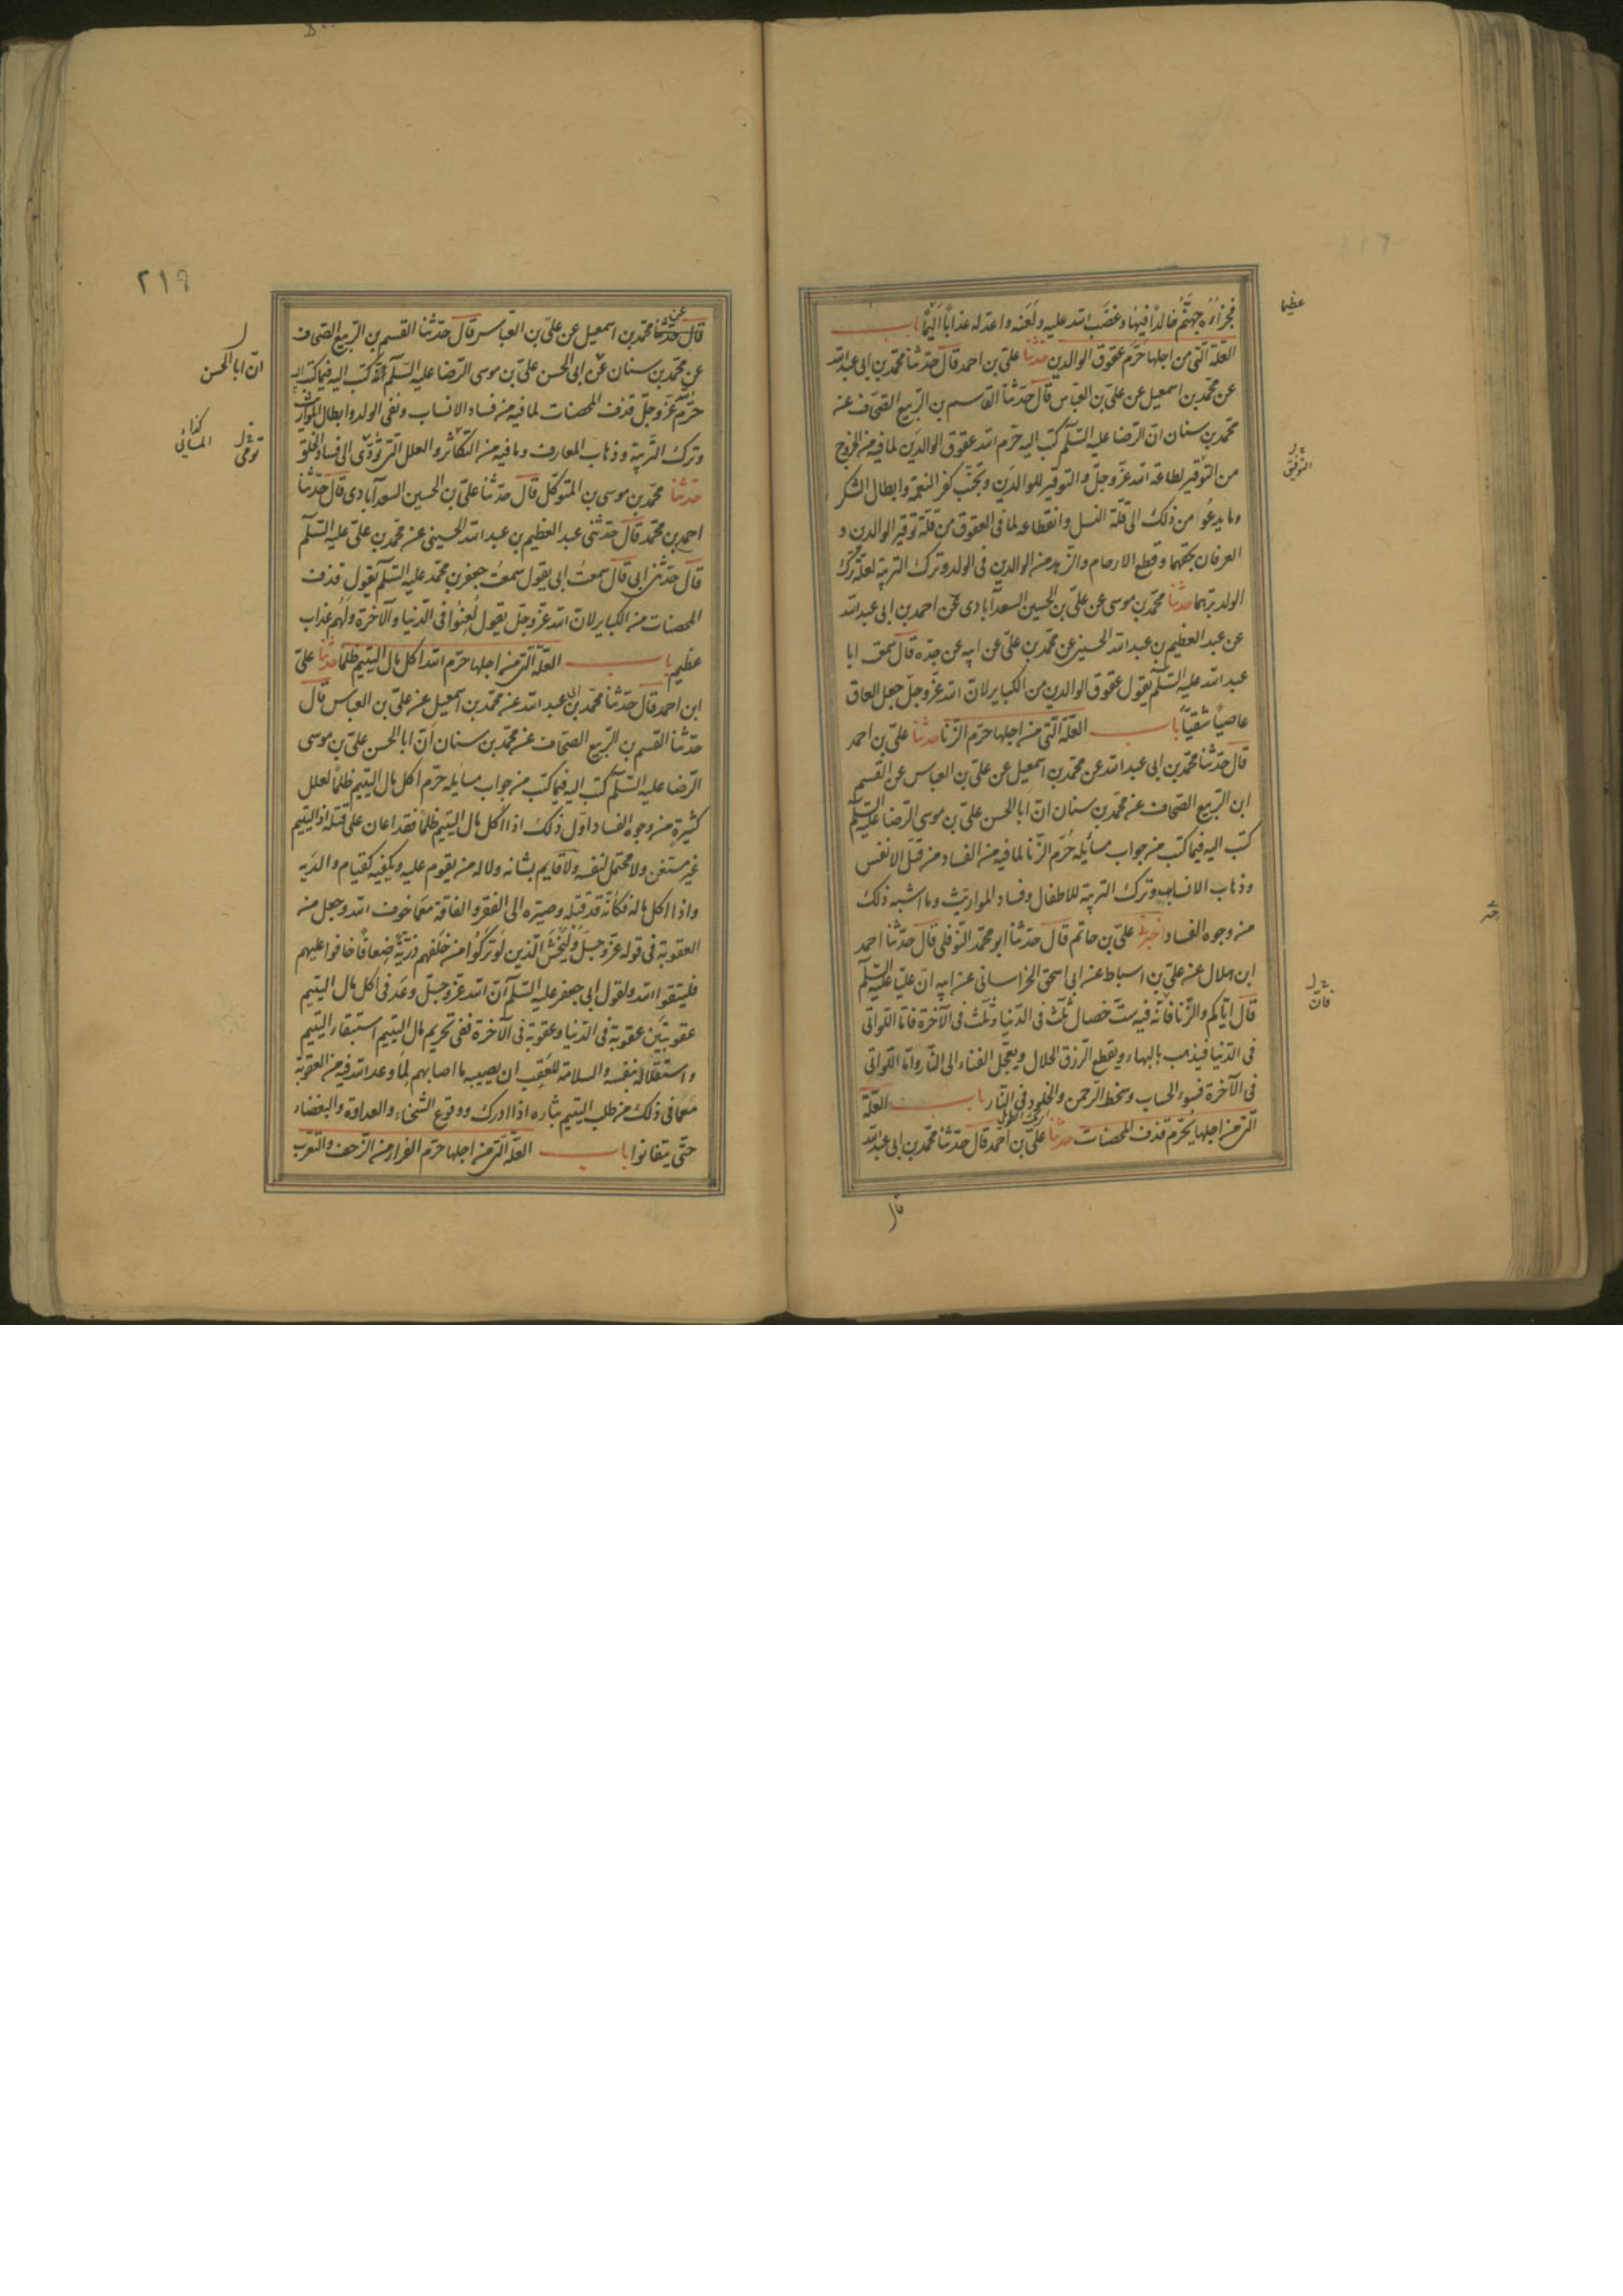 فجزاؤه جهنم خالدا فيها وغضب الله عليه ولعنه واعد له عذابا اليما باب
عظيما
العلة التي من اجلها حرم عقوق الوالدين حدثنا علي بن احمد قال حدثنا محمد بن ابي عبد الله
عن محمد بن اسمعيل عن علي بن العباس قال حدثنا القاسم بن الربيع الصحاف عن
محمد بن سنان ان الرضا عليه السلم كتب اليه حرم الله عقوق الوالدين لما فيه من الخروج
من التوقير لطاعة الله عز وجل والتوقير للوالدين وتجنب كفر النعمة وابطال الشكر
التوفيق
وما يدعو من ذلك الى قلة النسل وانقطاعه لما في العقوق من قلة توقير الوالدين و
العرفان بحقهما وقطع الارحام والزهد من الوالدين في الولد وترك التربية لعلة ترك
الولد برهما حدثنا محمد بن موسى عن علي بن الحسين السعدآبادي عن احمد بن ابي عبد الله
عن عبد العظيم بن عبد الله الحسيني عن محمد بن علي عن ابيه عن جده قال سمعت ابا
عبد الله عليه السلم يقول عقوق الوالدين من الكباير لان الله عز وجل جعل العاق
عاصيا شقيا باب العلة التي من اجلها حرم الزنا حدثنا علي بن احمد
قال حدثنا محمد بن ابي عبد الله عن محمد بن اسمعيل عن علي بن العباس عن القسم
ابن الربيع الصحاف عن محمد بن سنان ان ابا الحسن علي بن موسى الرضا عليه السلم
كتب اليه فيما كتب من جواب مسائله حرم الزنا لما فيه من الفساد من قتل الانفس
وذهاب الانساب وترك التربية للاطفال وفساد المواريث وما اشبه ذلك
من وجوه الفساد اخبرني علي بن حاتم قال حدثنا ابو محمد النوفلي قال حدثنا احمد
ابن هلال عن علي بن اسباط عن ابي اسحق الخراساني عن ابيه ان عليا عليه السلم
قال اياكم والزنا فانه فيه ست خصال ثلث في الدنيا وثلث في الآخرة فاما اللواتي
فان
في الدنيا فيذهب بالبهاء ويقطع الرزق الحلال ويعجل الفناء الى النار واما اللواتي
في الآخرة فسوء الحساب وسخط الرحمن والخلود في النار باب العلة
التي من اجلها يحرم قذف المحصنات حدثنا علي بن احمد قال حدثنا محمد بن ابي عبد الله
قال
٢١٩
قال حدثنا عن محمد بن اسمعيل عن علي بن العباس قال حدثنا القسم بن الربيع الصحاف
عن محمد بن سنان عن ابي الحسن علي بن موسى الرضا عليه السلم كتب اليه فيما كتب اليه
ان ابا الحسن
حرم عز وجل قذف المحصنات لما فيه من فساد الانساب ونفي الولد وابطال المواريث
وترك التربية وذهاب المعارف وما فيه من التكاثر والعلل التي تؤدي الى فساد الخلق
حدثنا محمد بن موسى بن المتوكل قال حدثنا علي بن الحسين السعدآبادي قال حدثنا
احمد بن محمد قال حدثني عبد العظيم بن عبد الله الحسيني عن محمد بن علي عليه السلم
قال حدثني ابي قال سمعت ابي يقول سمعت جعفر بن محمد عليه السلم يقول قذف
المحصنات من الكباير لان الله عز وجل يقول لعنوا في الدنيا والآخرة ولهم عذاب
عظيم باب العلة التي من اجلها حرم الله اكل مال اليتيم ظلما حدثنا علي
ابن احمد قال حدثنا محمد بن ابي عبد الله عن محمد بن اسمعيل عن علي بن العباس قال
حدثنا القسم بن الربيع الصحاف عن محمد بن سنان ان ابا الحسن علي بن موسى
الرضا عليه السلم كتب اليه فيما كتب من جواب مسايله حرم اكل مال اليتيم ظلما لعلل
كثيرة من وجوه الفساد اول ذلك اذا اكل مال اليتيم ظلما فقد اعان على قتله اذ اليتيم
غير مستغن ولا محتمل لنفسه ولا قايم بشانه ولا له من يقوم عليه ويكفيه كقيام والديه
واذا اكل ماله فكانه قد قتله وصيره الى الفقر والفاقة مع ما خوف الله وجعل من
العقوبة في قوله عز وجل وليخش الذين لو تركوا من خلفهم ذرية ضعافا خافوا عليهم
فليتقوا الله ولقول ابي جعفر عليه السلم ان الله عز وجل وعد في اكل مال اليتيم
عقوبتين عقوبة في الدنيا وعقوبة في الآخرة ففي تحريم مال اليتيم استبقاء اليتيم
واستقلاله بنفسه والسلامة للعقب ان يصيبه ما اصابهم لما وعد الله فيه من العقوبة
مع ما في ذلك من طلب اليتيم بثاره اذا ادرك ووقوع الشحناء والعداوة والبغضاء
حتى يتفانوا باب العلة التي من اجلها حرم الفرار من الزحف والتعرب